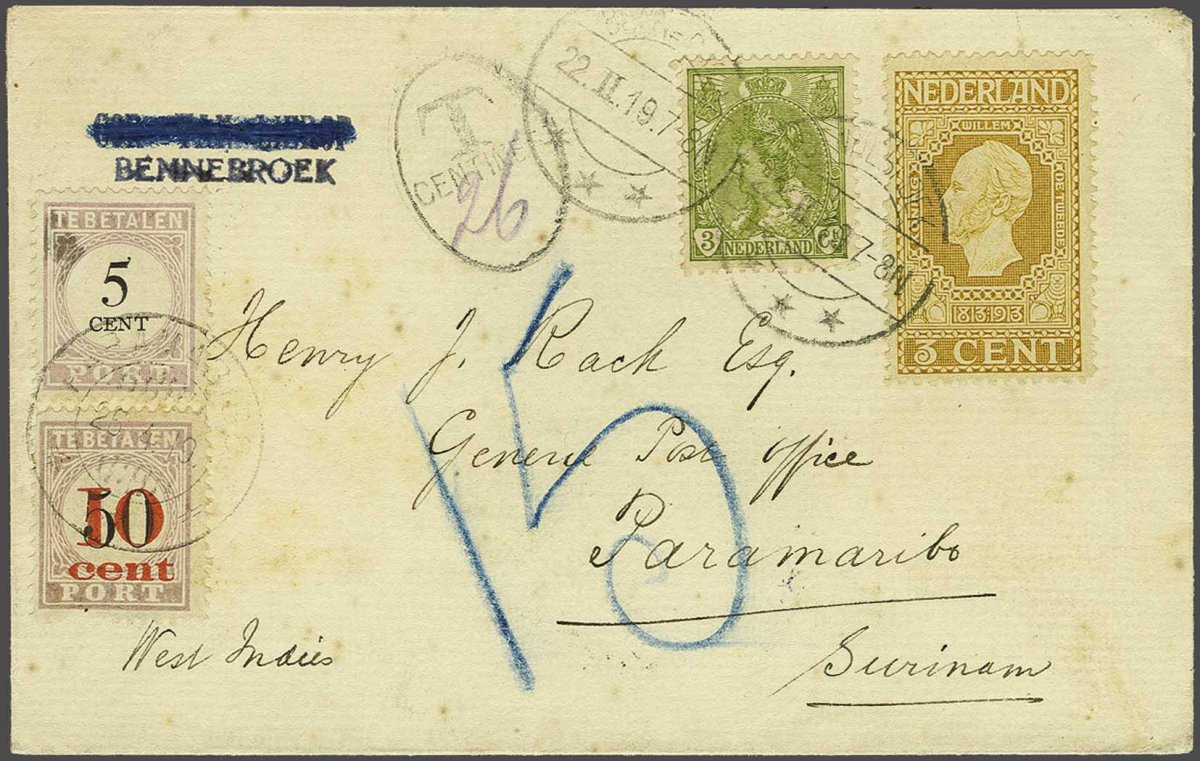 BENNEBROEK
T
CENTIMES
26
22.II.19.7-8N
7-8N
3 Ct
NEDERLAND
NEDERLAND
WILLEM
KONING
DE TWEEDE
1813 1913
3 CENT
TE BETALEN
5
CENT
PORT
TE BETALEN
50
10
cent
PORT
15
Henry J. Rack Esq.
General Post Office
Paramaribo
Surinam
West Indiës